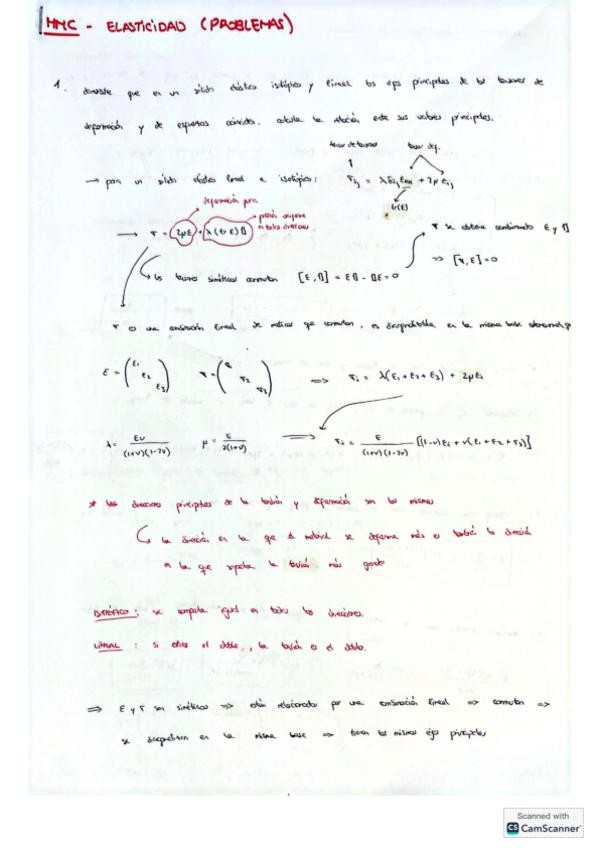 MMC - ELASTICIDAD (PROBLEMAS)
1. demuestre que en un sólido elástico isotópico y lineal los ejes principales de los tensores de
deformación y de esfuerzos coinciden. calcula la relación entre sus valores principales.
tensor de tensiones tensor def.
→ para un sólido elástico lineal e isotópico: τij = λ δij εkk + 2μ εij
tr(ε)
deformación pura
presión uniforme en todas direcciones
→ τ = 2με + λ(tr ε)𝟙
τ se obtiene combinando ε y 𝟙
⇒ [τ, ε] = 0
los tensores simétricos conmutan [ε, 𝟙] = ε𝟙 - 𝟙ε = 0
τ es una combinación lineal de matrices que conmutan, es diagonalizable en la misma base
ε = (ε1 ε2 ε3) τ = (τ2 τ3) ⇒ τi = λ(ε1 + ε2 + ε3) + 2μεi
λ = Eν / (1+ν)(1-2ν) μ = E / 2(1+ν) ⇒ τi = E / (1+ν)(1-2ν) [(1-ν)εi + ν(ε1 + ε2 + ε3)]
* las direcciones principales de la tensión y deformación son las mismas
la dirección en la que el material se deforma más es también la dirección
en la que soporta la tensión más grande
ISOTÓPICO: se comporta igual en todas las direcciones.
LINEAL: si el doble, la tensión es el doble.
⇒ ε y τ son simétricos ⇒ están relacionados por una combinación lineal ⇒ conmutan ⇒
se diagonalizan en la misma base ⇒ tienen los mismos ejes principales
Scanned with
CS CamScanner